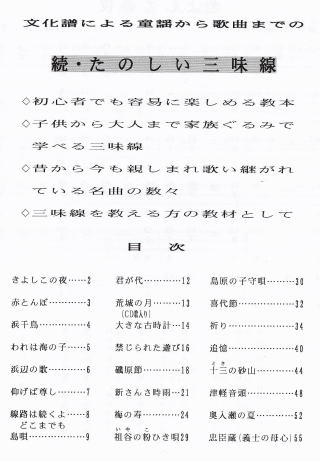 文化譜による童謡から歌曲までの
続・たのしい三味線
◇初心者でも容易に楽しめる教本
◇子供から大人まで家族ぐるみで
学べる三味線
◇昔から今も親しまれ歌い継がれ
ている名曲の数々
◇三味線を教える方の教材として
目 次
きよしこの夜……2
赤とんぼ…………3
浜千鳥……………4
われは海の子……5
浜辺の歌…………6
仰げば尊し………7
線路は続くよ……8
どこまでも
島唄………………9
君が代…………12
荒城の月………13
(CD歌入り)
大きな古時計…14
禁じられた遊び16
磯原節…………18
新さんさ時雨…21
梅の寿…………24
いやこ
祖谷の粉ひき唄29
島原の子守唄………30
喜代節………………32
祈り…………………34
追憶…………………40
とさ
十三の砂山…………44
津軽音頭……………48
奥入瀬の夏…………52
忠臣蔵(義士の母心)55